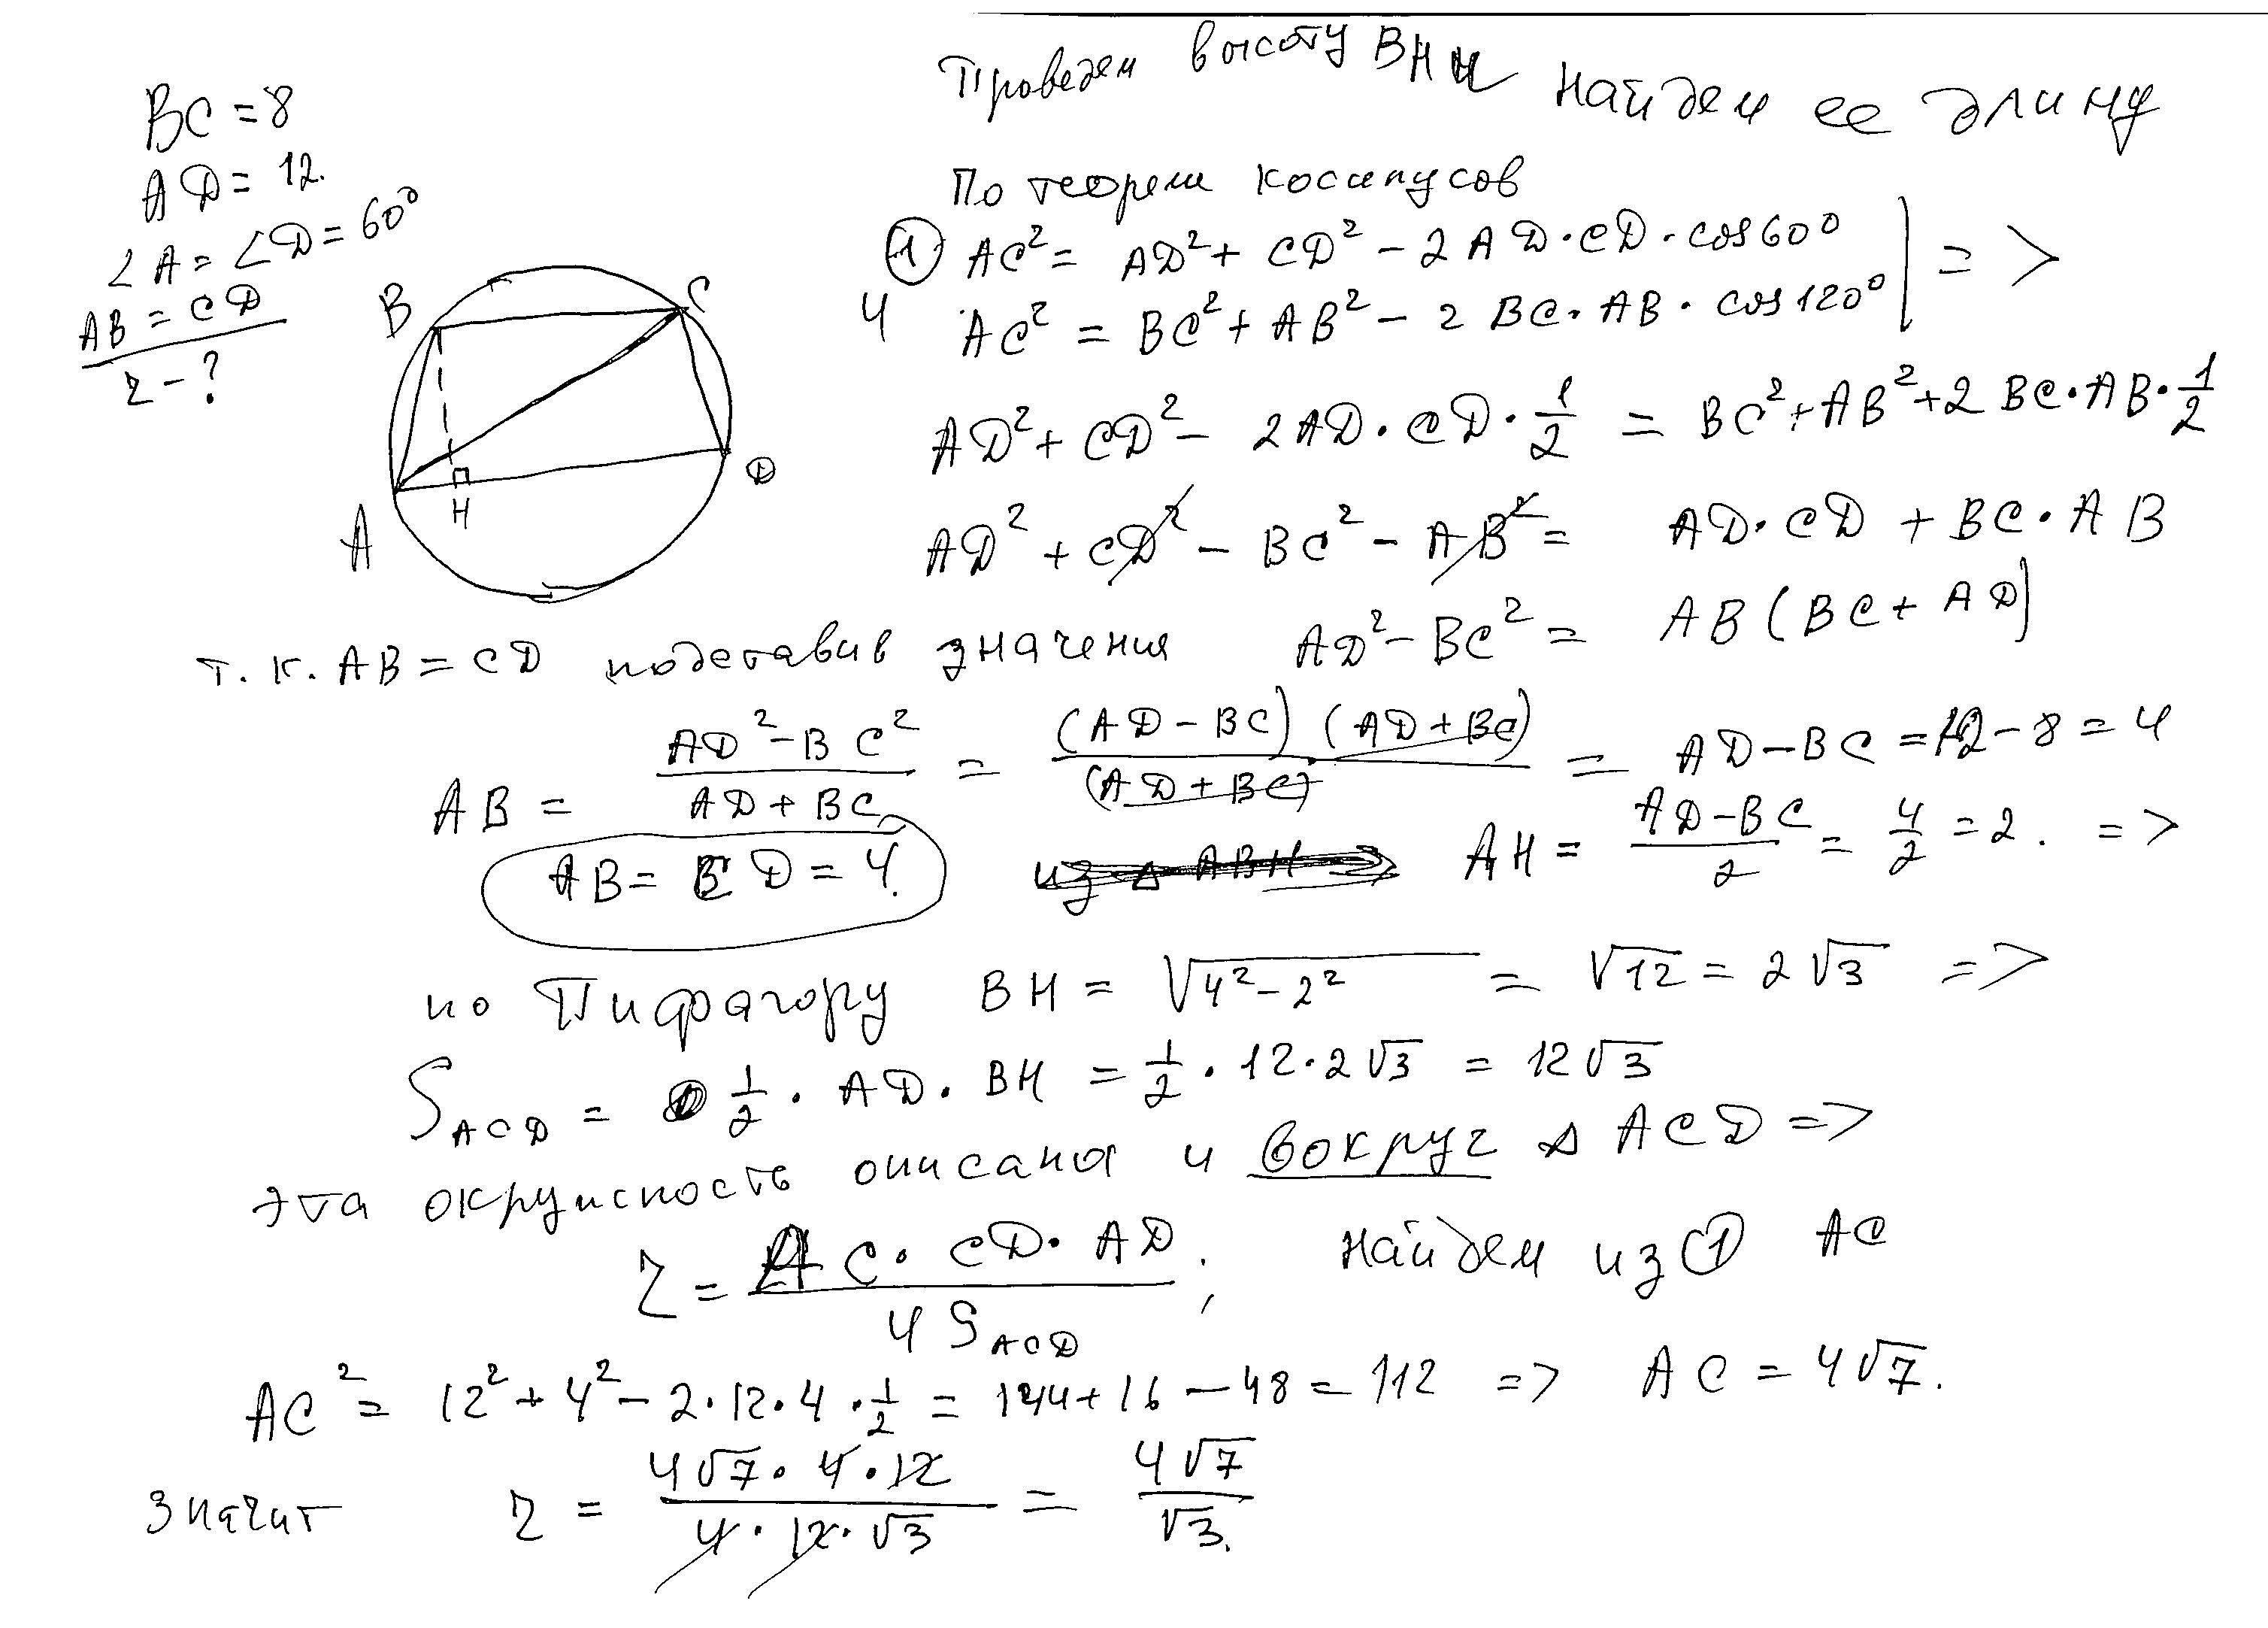 Проведем высоту BH и найдем ее длину
BC = 8
AD = 12.
∠A = ∠D = 60°
AB = CD
r - ?
По теореме косинусов
① AC² = AD² + CD² - 2AD·CD·cos60° | =>
и AC² = BC² + AB² - 2BC·AB·cos120° |
B C
A H D
AD² + CD² - 2AD·CD·1/2 = BC² + AB² + 2BC·AB·1/2
AD² + CD² - BC² - AB² = AD·CD + BC·AB
т.к. AB = CD подставив значения AD² - BC² = AB(BC + AD)
AB = (AD² - BC²)/(AD + BC) = (AD - BC)(AD + BC)/(AD + BC) = AD - BC = 12 - 8 = 4
AB = CD = 4. из △ABH => AH = (AD - BC)/2 = 4/2 = 2. =>
по Пифагору BH = √(4² - 2²) = √12 = 2√3 =>
S_ACD = 1/2 · AD · BH = 1/2 · 12 · 2√3 = 12√3
эта окружность описана и вокруг △ACD =>
r = (AC · CD · AD)/(4 S_ACD); найдем из ① AC
AC² = 12² + 4² - 2·12·4·1/2 = 144 + 16 - 48 = 112 => AC = 4√7.
значит r = (4√7 · 4 · 12)/(4 · 12 · √3) = 4√7/√3.